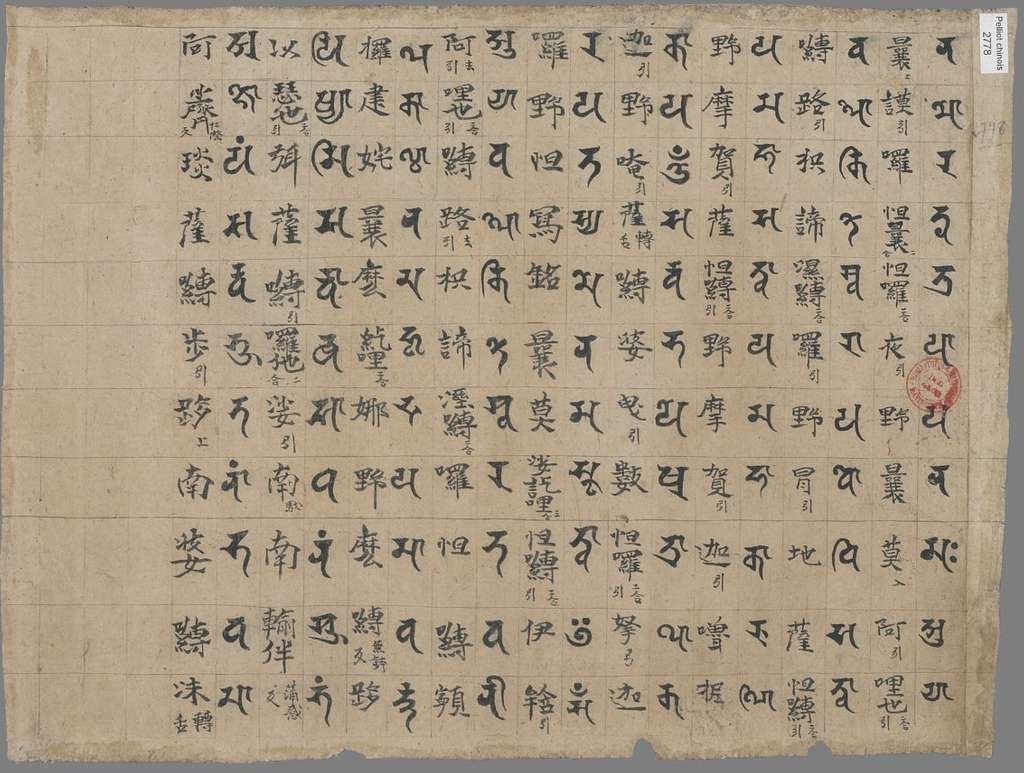 𑖡 𑖦𑖺 𑖨 𑖝𑖿𑖡 𑖝𑖿𑖨 𑖧𑖯 𑖧 𑖡 𑖦𑖾 𑖁 𑖨𑖿𑖧𑖯
曩二 謨引 囉 怛曩二合 怛囉二合 夜引 野 曩 莫入 阿引 哩也二合引
𑖪 𑖩𑖺 𑖎𑖰 𑖝𑖸 𑖫𑖿𑖪 𑖨𑖯 𑖧 𑖤𑖺 𑖠𑖰 𑖭 𑖝𑖿𑖪𑖯
嚩 路引 枳 諦 濕嚩二合 羅引 野 冒引 地 薩 怛嚩二合引
𑖧 𑖦 𑖮𑖯 𑖭 𑖝𑖿𑖪𑖯 𑖧 𑖦 𑖮𑖯 𑖎𑖯 𑖨𑖲 𑖜𑖰
野 摩 賀引 薩 怛嚩二合引 野 摩 賀引 迦引 嚕 抳
𑖎𑖯 𑖧 𑖌𑖼 𑖭 𑖨𑖿𑖪 𑖥 𑖧𑖸 𑖝𑖿𑖨𑖯 𑖜 𑖎
迦引 野 唵引 薩轉舌 嚩 婆 曳引 數 怛羅二合引 拏 迦
𑖨 𑖧 𑖝 𑖭𑖿𑖧 𑖦𑖸 𑖡 𑖦 𑖭𑖿𑖎𑖴 𑖝𑖿𑖪𑖯 𑖂 𑖦𑖯𑖽
羅 野 怛 寫 銘 曩 莫 娑訖哩三合 怛嚩二合引 伊
𑖁 𑖨𑖿𑖧𑖯 𑖪 𑖩𑖺 𑖎𑖰 𑖝𑖸 𑖫𑖿𑖪 𑖨 𑖝 𑖪 𑖡𑖱
阿去引 哩也二合引 嚩 路去引 枳 諦 溼嚩二合 羅 怛 嚩
𑖩 𑖎 𑖜𑖿𑖙 𑖡 𑖦 𑖮𑖴 𑖟 𑖧 𑖦 𑖪 𑖝
攞 建 姹 曩 麼 紇哩二合 娜 野 麼 嚩 跢
𑖧𑖰 𑖬𑖿𑖧𑖯 𑖦𑖰 𑖭 𑖨𑖿𑖪𑖯 𑖭𑖯 𑖠 𑖡𑖽 𑖫𑖲 𑖥𑖽
以 瑟也二合引 弭 薩 嚩引 囉他二合 娑引 南 南 輸 伴
𑖀 𑖕𑖸 𑖧𑖽 𑖭 𑖨𑖿𑖪 𑖥𑖳 𑖝 𑖡𑖯𑖽 𑖥 𑖪 𑖦𑖯
阿 琰 薩 嚩 步引 跢上 南 婆 嚩 沬轉舌
Pelliot chinois
2778